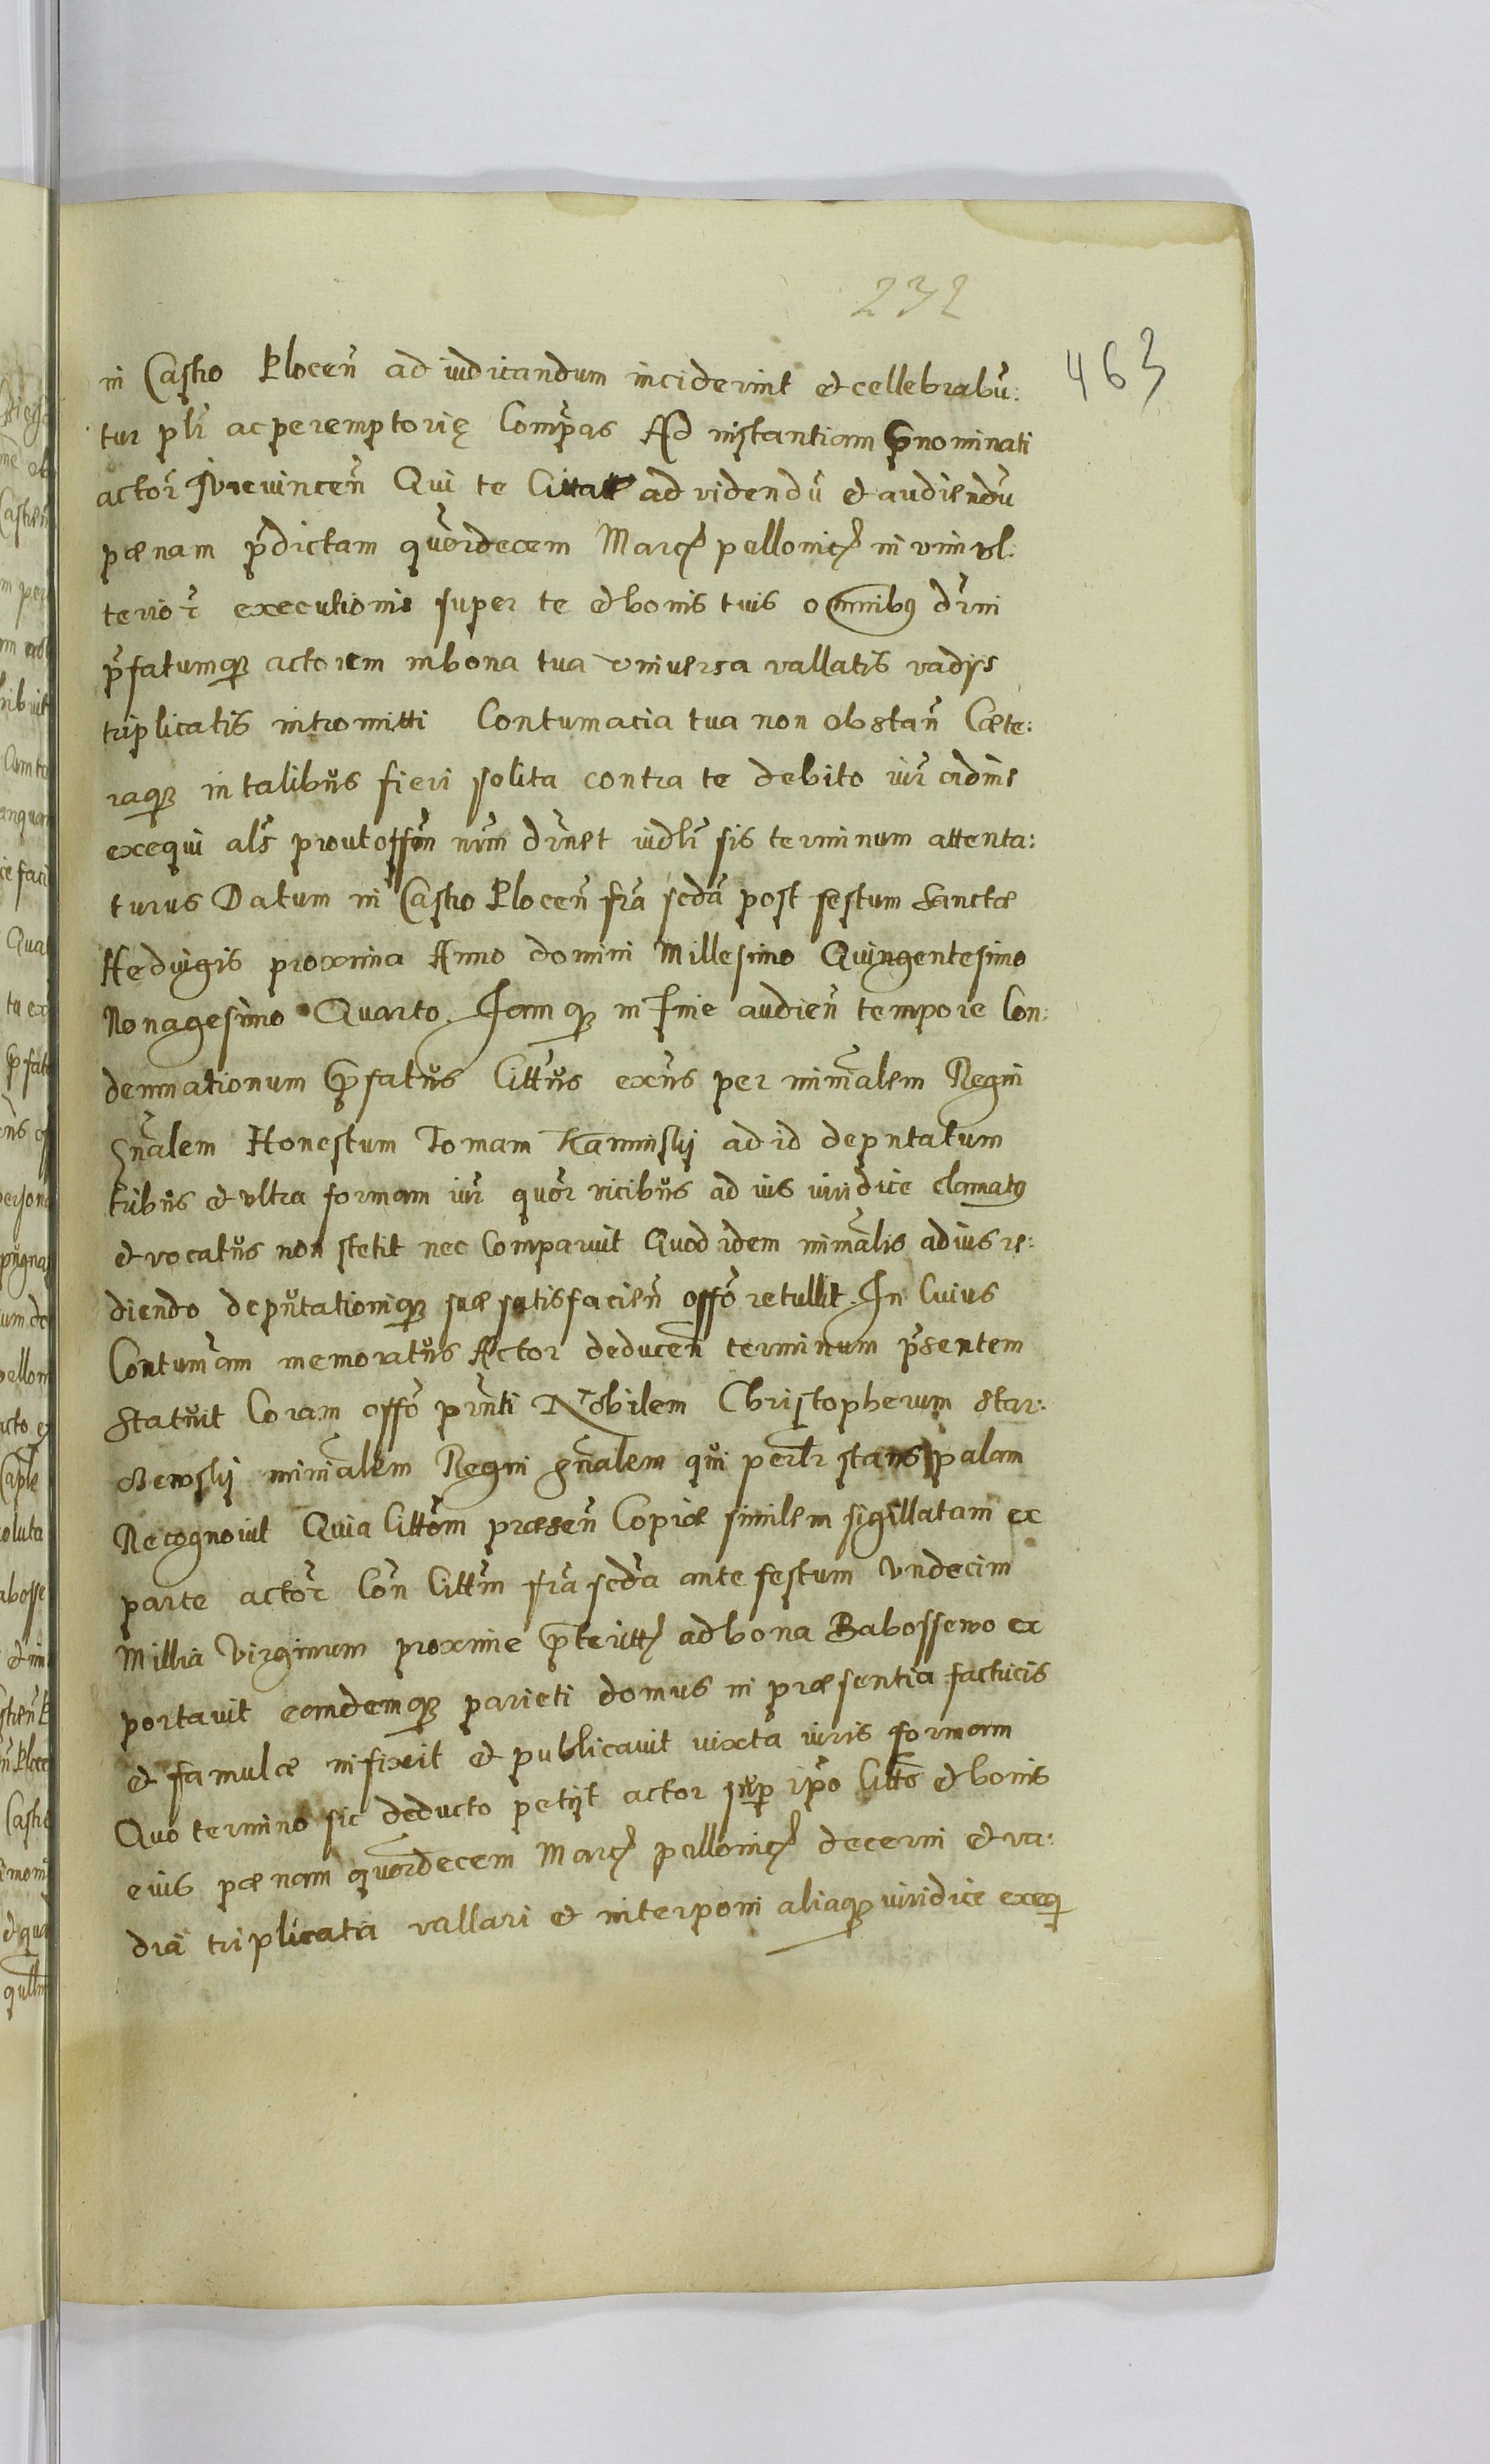 232
463
in Castro Plocen̄ ad iudicandum inciderint et cellebrabū:
tur pl̄r ac peremptorię Comp̄as Ad instantiam p̄nominati
actor̄ Iureuincen̄ Qui te Cittat ad videndū et audiendū
pœnam p̄dictam quordecem Marc̨ pollonic̨ in vim vl:
terior̄ executionis super te et bonis tuis omnibꝯ d̄rni
p̄fatumqꝫ actorem in bona tua vniuersa vallatis vadÿs
triplicatis intromitti Contumacia tua non obstan̄ Cæte:
raqꝫ in talibus fieri solita contra te debito iur̄ ordine
exequi al̄s prout off̄m nr̄m d̄rnet iudl̄r sis terminum attenta:
turus Datum in Castro Plocen̄ fr̄a scdā post festum Sanctæ
Heduigis proxima Anno domini Millesimo Quingentesimo
Nonagesimo Quarto. Iamqꝫ in fine audien̄ tempore Con:
demnationum p̄fatus Citt̄us ex̄ns per min̄ralem Regni
Gn̄alem Honestum Tomam Kaminskj ad id deputatum
tribus et vltra formam iur̄ quor̄ vicibus ad ius iuridice clamatꝯ
et vocatus non stetit nec Comparuit Quod idem min̄ralis ad ius re:
diendo deputationiqꝫ suæ satisfacien̄ off̄o retullit. In Cuius
Contum̄am memoratus Actor deducen̄ terminum p̄sentem
Statuit Coram off̄o pn̄ti Nobilem Christopherum Star:
ozewskj min̄ralem Regni gn̄alem qui per̄lr stans palam
Recognouit Quia Citt̄om præsen̄ Copiæ similem sigillatam ex
parte actor̄ Con̄ Citt̄m fr̄a scdā ante festum Vndecim
Millia Virginum proxime p̄teritt̨ ad bona Babossewo ex
portauit eamdemqꝫ parieti domus in præsentia factricis
et famulæ infixit et publicauit iuxta iuris formam
Quo termino sic deducto petÿt actor sup̄ ip̄o Citt̄o et bonis
eius pœnam quordecem Marc̨ pollonic̨ decerni et va:
dia triplicata vallari et interponi aliaqꝫ iuridice exeqꝫ